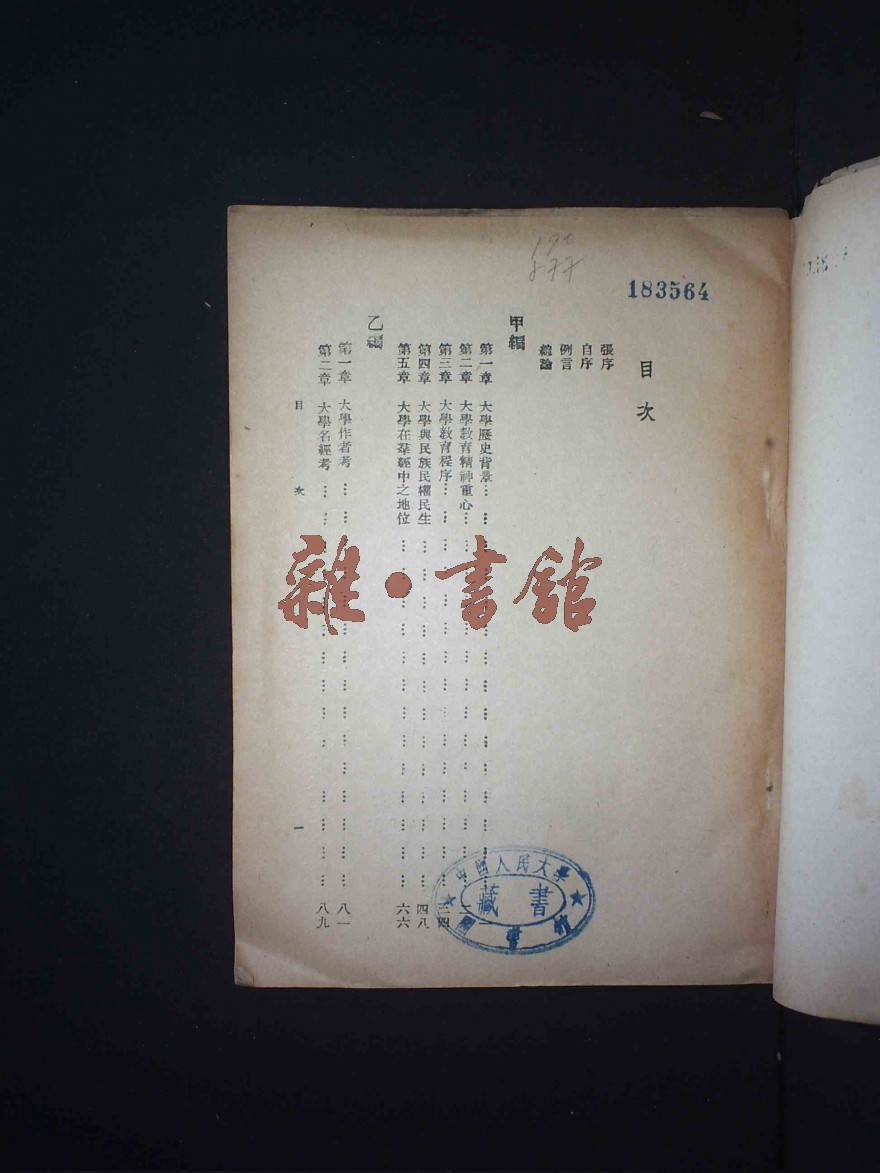 183564
目次
張序
自序
例言
總論
甲編
第一章 大學歷史背景……一
第二章 大學教育精神重心……
第三章 大學教育程序……三四
第四章 大學與民族民權民生……四八
第五章 大學在羣經中之地位……六六
乙編
第一章 大學作者考……八一
第二章 大學名經考……八九
目次 一
中國人民大學
藏書
圖書館
雜·書館